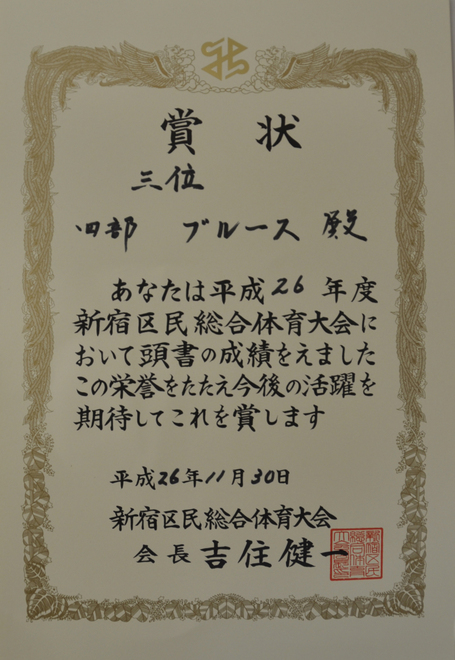 賞状
三位
四部 ブルース 殿
あなたは平成26年度
新宿区民総合体育大会に
おいて頭書の成績をえました
この栄誉をたたえ今後の活躍を
期待してこれを賞します
平成26年11月30日
新宿区民総合体育大会
会長 吉住健一